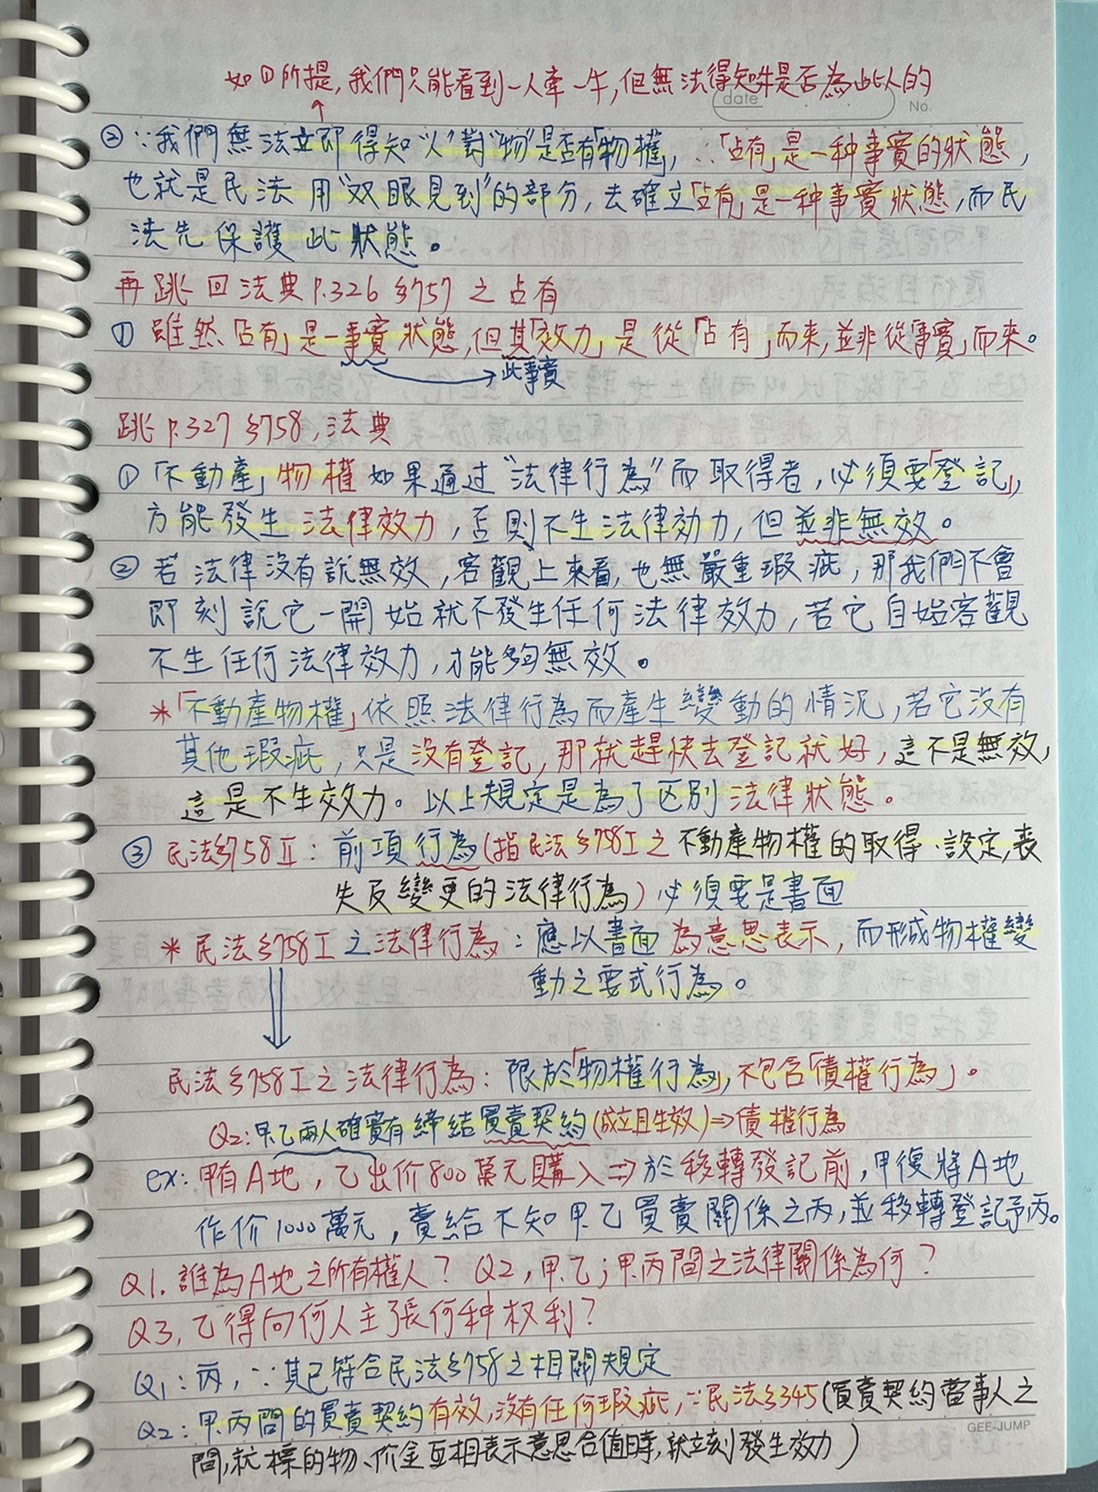 如①所提,我們只能看到一人牽一牛,但無法得知牛是否為此人的
date
No.
②∵我們無法立即得知"人"對"物"是否有「物權」,∴「占有」是一种事實的狀態,
也就是民法用"双眼見到"的部分,去確立「占有」是一种事實狀態,而民
法先保護此狀態。
再跳回法典P.326 §757之占有
① 雖然「占有」是一事實狀態,但其「效力」是從「占有」而來,並非從「事實」而來。
此事實
跳P.327 §758,法典
①「不動產」物權如果通过"法律行為"而取得者,必須要「登記」,
方能發生法律效力,否則不生法律効力,但並非無效。
② 若法律沒有說無效,客觀上來看,也無嚴重瑕疵,那我們不會
即刻說它一開始就不發生任何法律效力,若它自始客觀
不生任何法律效力,才能夠無效。
*「不動產物權」依照法律行為而產生變動的情況,若它沒有
其他瑕疵,只是沒有登記,那就趕快去登記就好,這不是無效,
這是不生效力。以上規定是為了区別法律狀態。
③ 民法§758Ⅱ:前項行為(指民法§758Ⅰ之不動產物權的取得、設定,喪
失及變更的法律行為)必須要是書面
* 民法§758Ⅰ之法律行為:應以書面為意思表示,而形成物權變
動之要式行為。
民法§758Ⅰ之法律行為:限於「物權行為」,不包含「債權行為」。
Q2:甲.乙兩人確實有締結買賣契約(成立且生效)⇒債權行為
ex:甲有A地,乙出价800萬元購入⇒於移轉發記前,甲復將A地
作价1000萬元,賣給不知甲.乙買賣關係之丙,並移轉登記予丙。
Q1.誰為A地之所有權人? Q2,甲.乙;甲.丙間之法律關係為何?
Q3,乙得向何人主張何种权利?
Q1:丙,∵其已符合民法§758之相關規定
Q2:甲.丙間的買賣契約有效,沒有任何瑕疵,∵民法§345(買賣契約當事人之
GEE-JUMP
間,就標的物、价金互相表示意思合值時,就立刻發生效力)